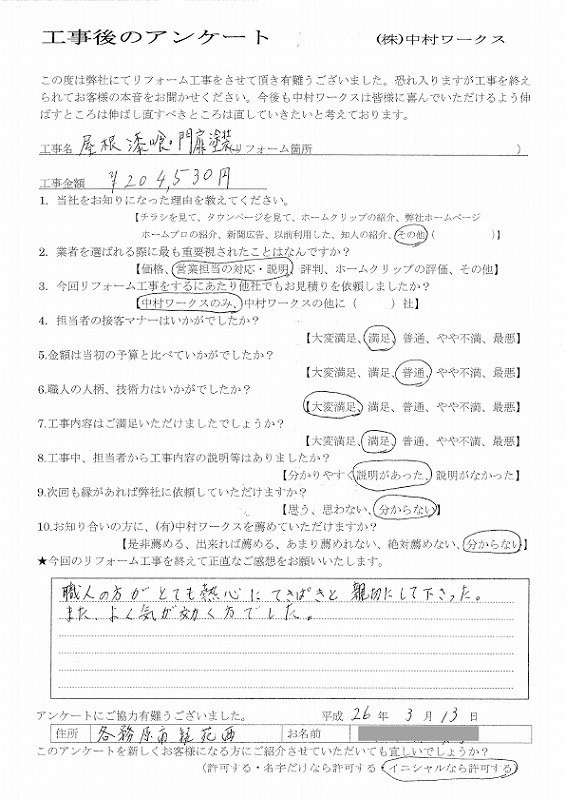 工事後のアンケート (株)中村ワークス
この度は弊社にてリフォーム工事をさせて頂き有難うございました。恐れ入りますが工事を終え
られてお客様の本音をお聞かせください。今後も中村ワークスは皆様に喜んでいただけるよう伸
ばすところは伸ばし直すべきところは直していきたいと考えております。
工事名 屋根漆喰・門扉塗装 リフォーム箇所 )
工事金額 ¥204,530円
1. 当社をお知りになった理由を教えてください。
【チラシを見て、タウンページを見て、ホームクリップの紹介、弊社ホームページ
ホームプロの紹介、新聞広告、以前利用した、知人の紹介、その他( )】
2. 業者を選ばれる際に最も重要視されたことはなんですか?
【価格、営業担当の対応・説明、評判、ホームクリップの評価、その他】
3. 今回リフォーム工事をするにあたり他社でもお見積りを依頼しましたか?
【中村ワークスのみ、中村ワークスの他に( )社】
4. 担当者の接客マナーはいかがでしたか?
【大変満足、満足、普通、やや不満、最悪】
5.金額は当初の予算と比べていかがでしたか?
【大変満足、満足、普通、やや不満、最悪】
6.職人の人柄、技術力はいかがでしたか?
【大変満足、満足、普通、やや不満、最悪】
7.工事内容はご満足いただけましたでしょうか?
【大変満足、満足、普通、やや不満、最悪】
8.工事中、担当者から工事内容の説明等はありましたか?
【分かりやすく説明があった、説明がなかった】
9.次回も縁があれば弊社に依頼していただけますか?
【思う、思わない、分からない】
10.お知り合いの方に、(有)中村ワークスを薦めていただけますか?
【是非薦める、出来れば薦める、あまり薦めれない、絶対薦めない、分からない】
★今回のリフォーム工事を終えて正直なご感想をお願いいたします。
職人の方がとても熱心にてきぱきと 親切にして下さった。
また、よく気が効く方でした。
アンケートにご協力有難うございました。 平成 26 年 3 月 13 日
住所 各務原市 西 お名前
このアンケートを新しくお客様になる方にご紹介させていただいても宜しいでしょうか?
(許可する・名字だけなら許可する・イニシャルなら許可する)